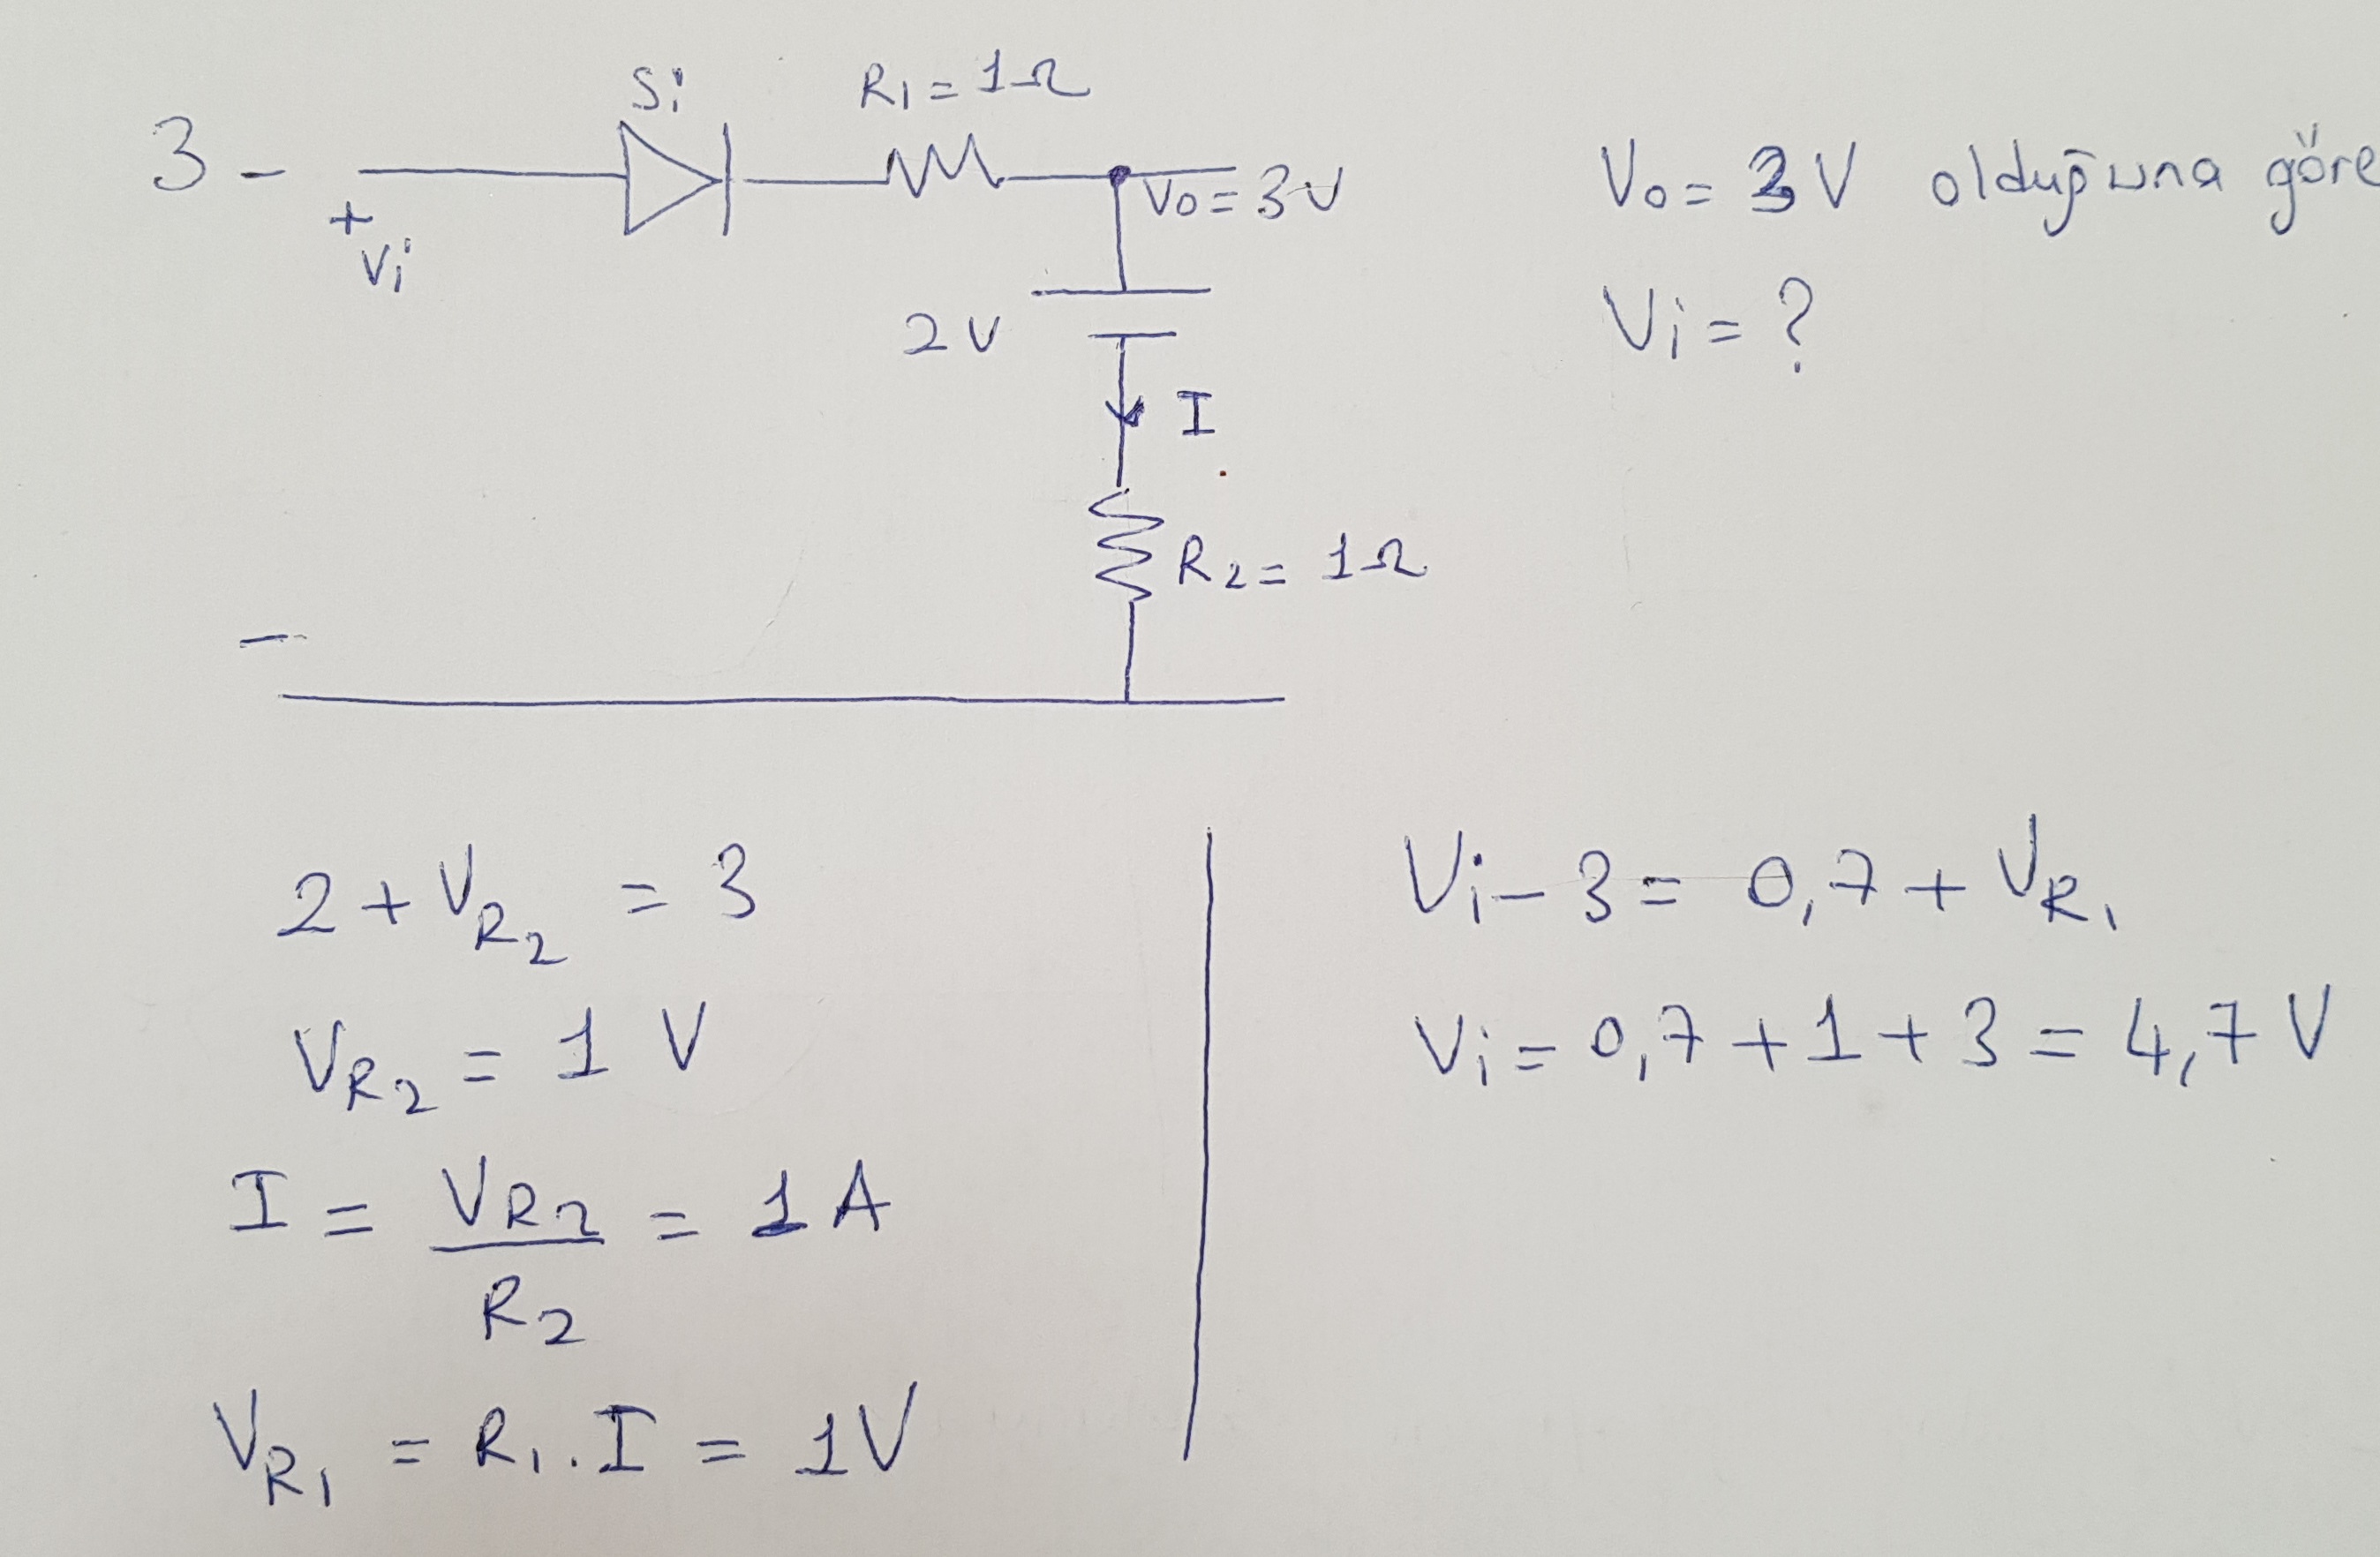 3 -
Si
R1 = 1Ω
+
Vi
Vo = 3V
2V
I
R2 = 1Ω
-
Vo = 3V olduğuna göre
Vi = ?
2 + VR2 = 3
VR2 = 1 V
I = VR2 / R2 = 1 A
VR1 = R1 . I = 1V
Vi - 3 = 0,7 + VR1
Vi = 0,7 + 1 + 3 = 4,7 V